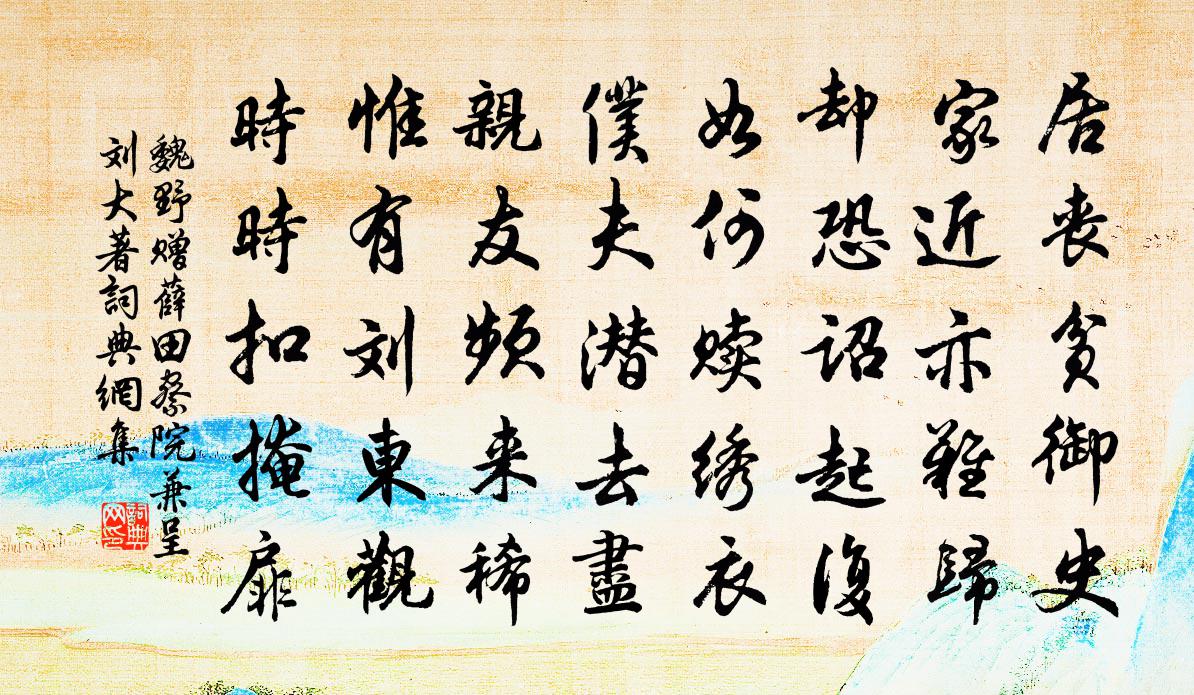 居丧贫御史
家近亦难歸
却恐詔起復
如何赎绣衣
僕夫潜去盡
親友頻来稀
惟有刘東觀
時時扣掩扉
魏野赠薛田察院兼呈
刘大著詞典網集
詞典网印